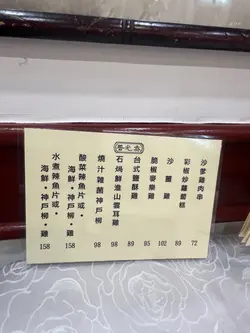 沙爹雞肉串
72
彩椒炒蘿蔔糕
80
沙薑雞
102
脆椒麥樂雞
95
台式鹽酥雞
89
石焗鮮淮山雲耳雞
98
燒汁雜菌神戶柳
98
酸菜辣魚片或•
海鮮•神戶柳•雞
158
水煮辣魚片或•
海鮮•神戶柳•雞
158